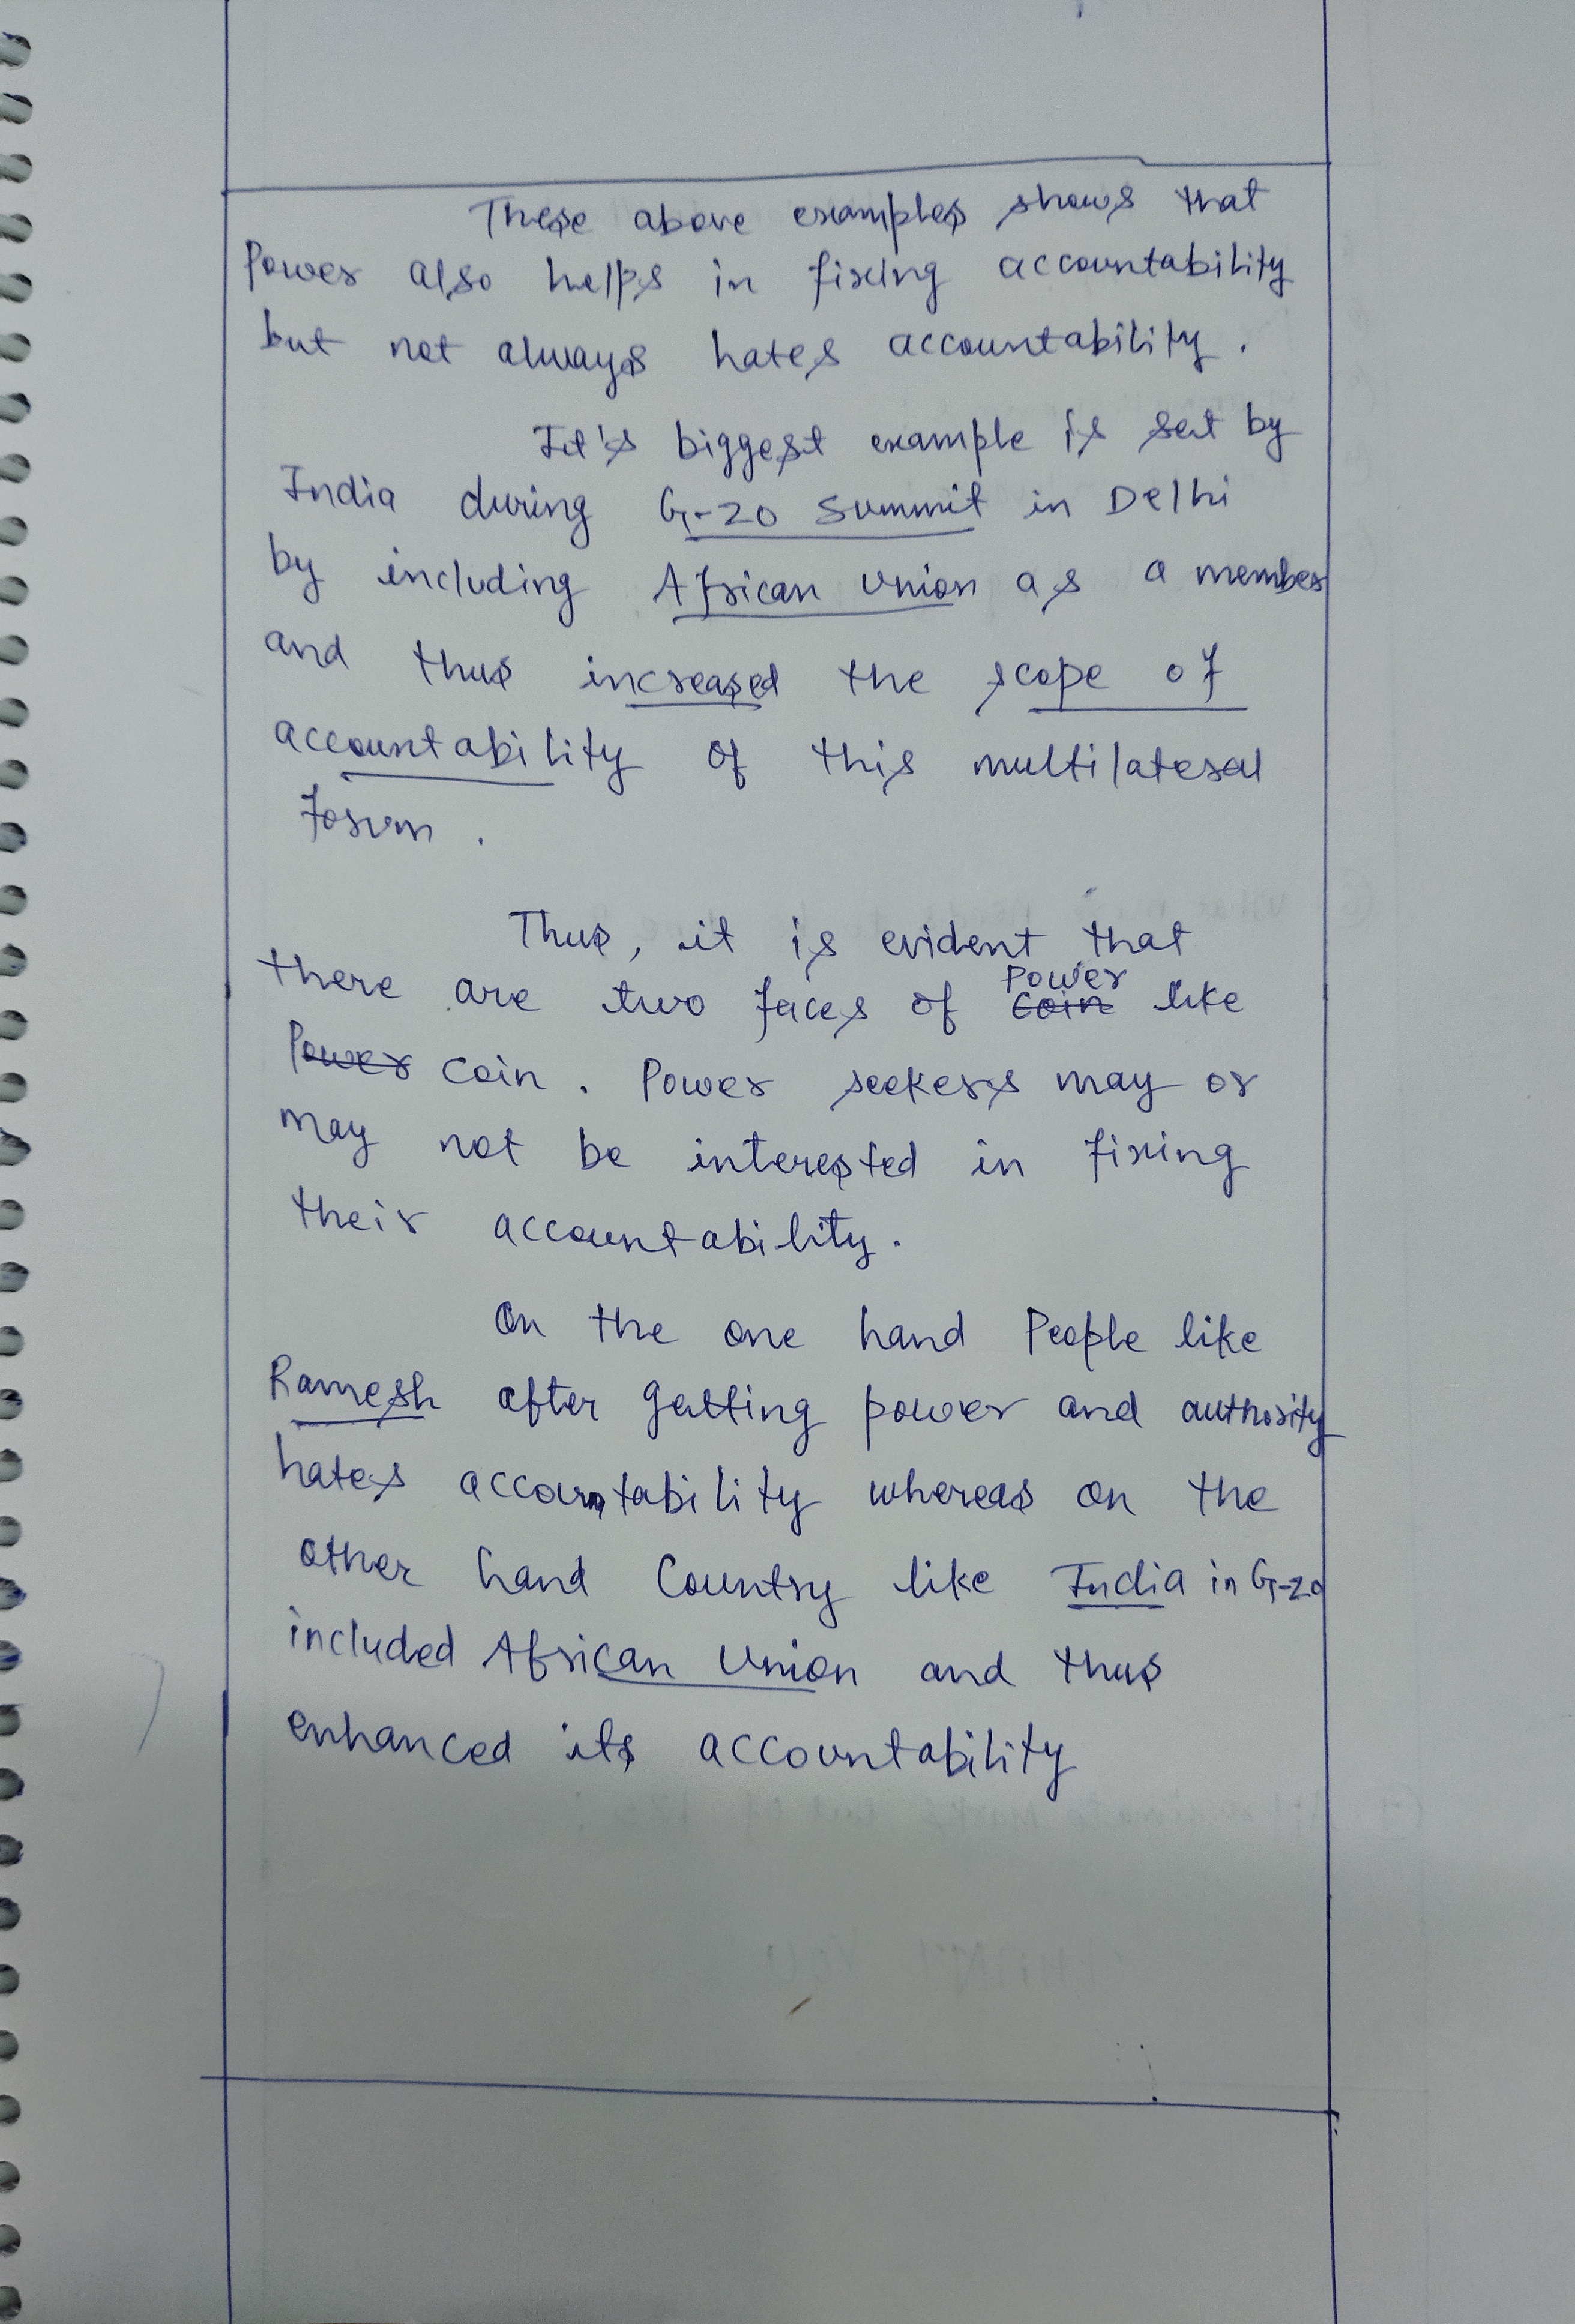 These above examples shows that
Power also helps in fixing accountability
but not always hates accountability.
It's biggest example is set by
India during G-20 Summit in Delhi
by including African Union as a member
and thus increased the scope of
accountability of this multilateral
forum.
Thus, it is evident that
there are two faces of Power like
coin. Power seekers may or
may not be interested in fixing
their accountability.
On the one hand People like
Ramesh after getting power and authority
hates accountability whereas on the
other hand Country like India in G-20
included African Union and thus
enhanced its accountability